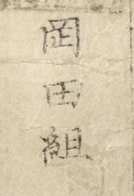 岡田組